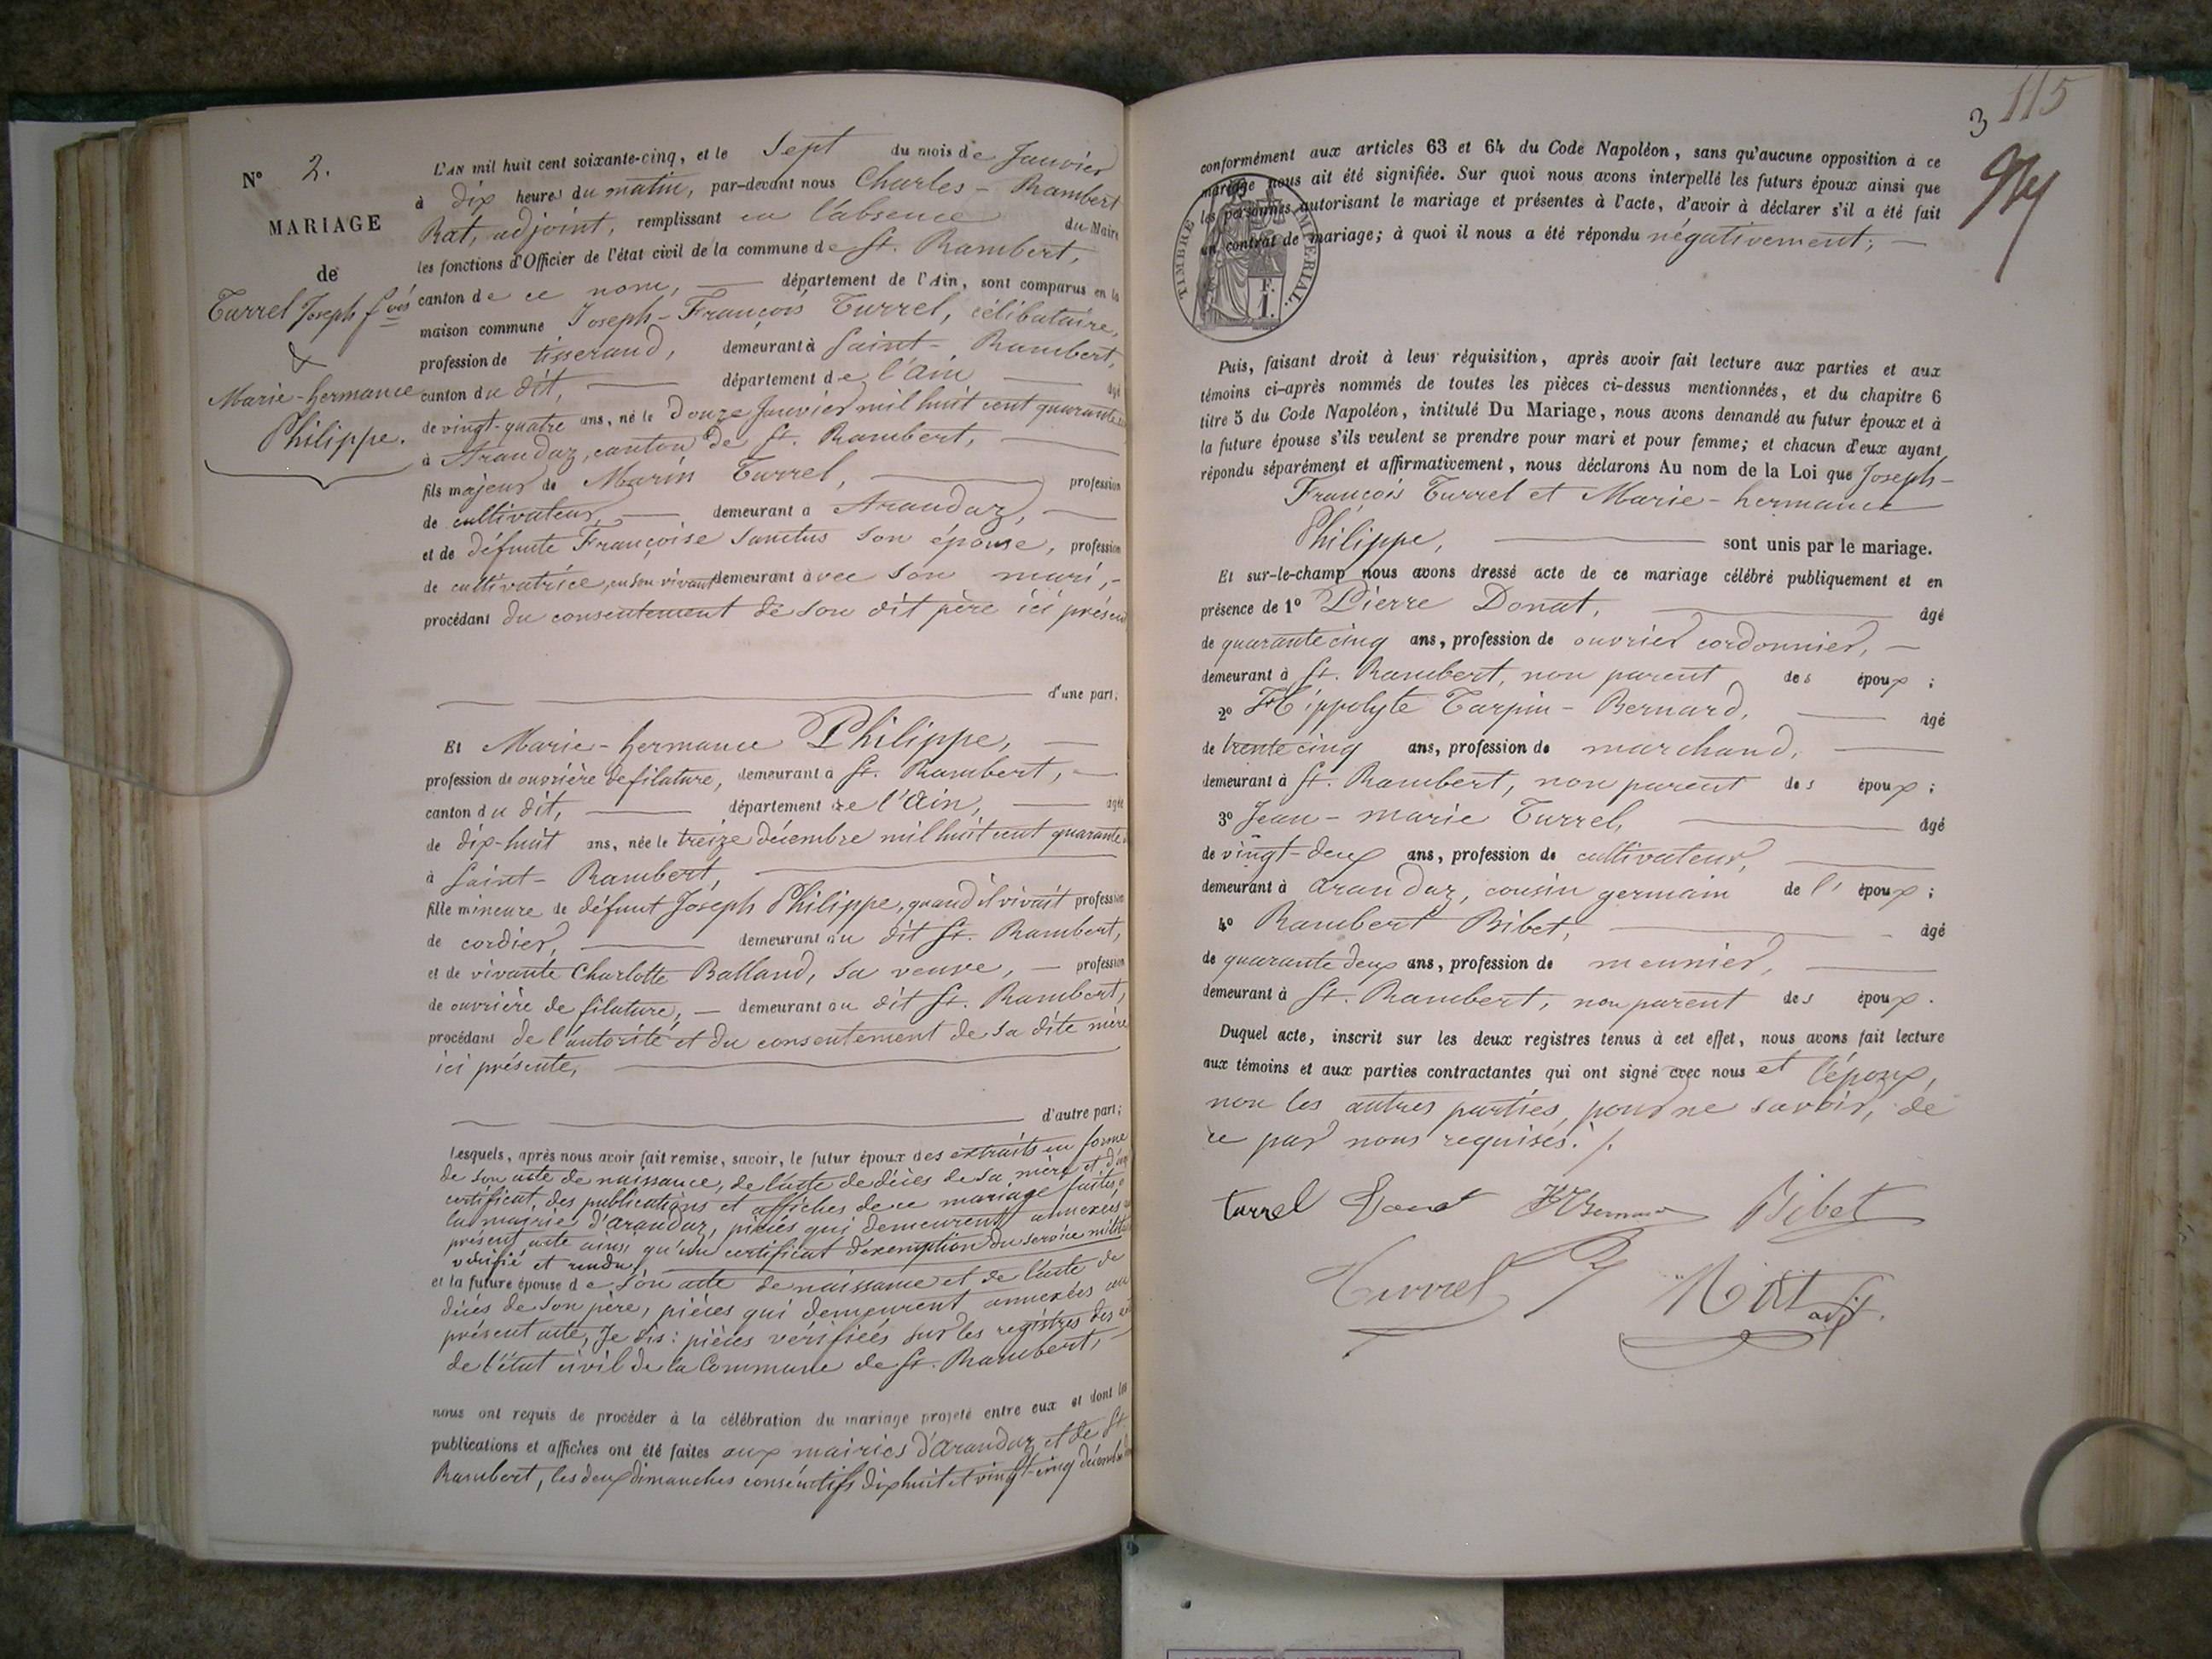 N° 2.
MARIAGE
de
Turrel Joseph f.ois
&
Marie-hermance
Philippe.
L'AN mil huit cent soixante-cinq, et le Sept du mois de Janvier
à dix heures du matin, par-devant nous Charles-Rambert
Rat, adjoint, remplissant en l'absence du Maire
les fonctions d'Officier de l'état civil de la commune de St. Rambert,
canton de ce nom, département de l'Ain, sont comparus en la
maison commune Joseph-François Turrel, célibataire,
profession de tisserand, demeurant à Saint-Rambert,
canton du dit, département de l'Ain, âgé
de vingt-quatre ans, né le Douze Janvier mil huit cent quarante
à Arandaz, canton de St. Rambert,
fils majeur de Marin Turrel, profession
de cultivateur, demeurant à Arandaz,
et de défunte Françoise Sanctus son épouse, profession
de cultivatrice, en son vivant demeurant avec son mari,
procédant du consentement de son dit père ici présent
d'une part;
Et Marie-hermance Philippe,
profession de ouvrière de filature, demeurant à St. Rambert,
canton du dit, département de l'Ain, âgée
de dix-huit ans, née le treize décembre mil huit cent quarante
à Saint-Rambert,
fille mineure de défunt Joseph Philippe, quand il vivait profession
de cordier, demeurant au dit St. Rambert,
et de vivante Charlotte Balland, sa veuve, profession
de ouvrière de filature, demeurant au dit St. Rambert,
procédant de l'autorité et du consentement de sa dite mère
ici présente,
d'autre part;
Lesquels, après nous avoir fait remise, savoir, le futur époux des extraits en forme
de son acte de naissance, de l'acte de décès de sa mère et d'un
certificat des publications et affiches de ce mariage faites à
la mairie d'Arandaz, pièces qui demeurent annexées au
présent acte ainsi qu'un certificat d'exemption du service milit
vérifié et rendu,
et la future épouse de son acte de naissance et de l'acte de
décès de son père, pièces qui demeurent annexées au
présent acte, Je dis: pièces vérifiées sur les registres des
de l'état civil de la Commune de St. Rambert,
nous ont requis de procéder à la célébration du mariage projeté entre eux et dont les
publications et affiches ont été faites aux mairies d'Arandaz et de St.
Rambert, les deux dimanches consécutifs dix huit et vingt-cinq décembre
3 115
conformément aux articles 63 et 64 du Code Napoléon, sans qu'aucune opposition à ce
mariage nous ait été signifiée. Sur quoi nous avons interpellé les futurs époux ainsi que
les personnes autorisant le mariage et présentes à l'acte, d'avoir à déclarer s'il a été fait
un contrat de mariage; à quoi il nous a été répondu négativement;
TIMBRE IMPÉRIAL.
F.
1.
Puis, faisant droit à leur réquisition, après avoir fait lecture aux parties et aux
témoins ci-après nommés de toutes les pièces ci-dessus mentionnées, et du chapitre 6
titre 5 du Code Napoléon, intitulé Du Mariage, nous avons demandé au futur époux et à
la future épouse s'ils veulent se prendre pour mari et pour femme; et chacun d'eux ayant
répondu séparément et affirmativement, nous déclarons Au nom de la Loi que Joseph-
François Turrel et Marie-hermance
Philippe, sont unis par le mariage.
Et sur-le-champ nous avons dressé acte de ce mariage célébré publiquement et en
présence de 1° Pierre Donat, âgé
de quarante cinq ans, profession de ouvrier cordonnier,
demeurant à St. Rambert, non parent des époux;
2° Hippolyte Tarpin-Bernard, âgé
de trente cinq ans, profession de marchand,
demeurant à St. Rambert, non parent des époux;
3° Jean-marie Turrel, âgé
de vingt-deux ans, profession de cultivateur,
demeurant à Arandaz, cousin germain de l'époux;
4° Rambert Bibet, âgé
de quarante deux ans, profession de meunier,
demeurant à St. Rambert, non parent des époux.
Duquel acte, inscrit sur les deux registres tenus à cet effet, nous avons fait lecture
aux témoins et aux parties contractantes qui ont signé avec nous et l'époux,
non les autres parties, pour ne savoir, de
ce par nous requises./.
turrel Donat HTBernard Bibet
Turrel Rat adjt.